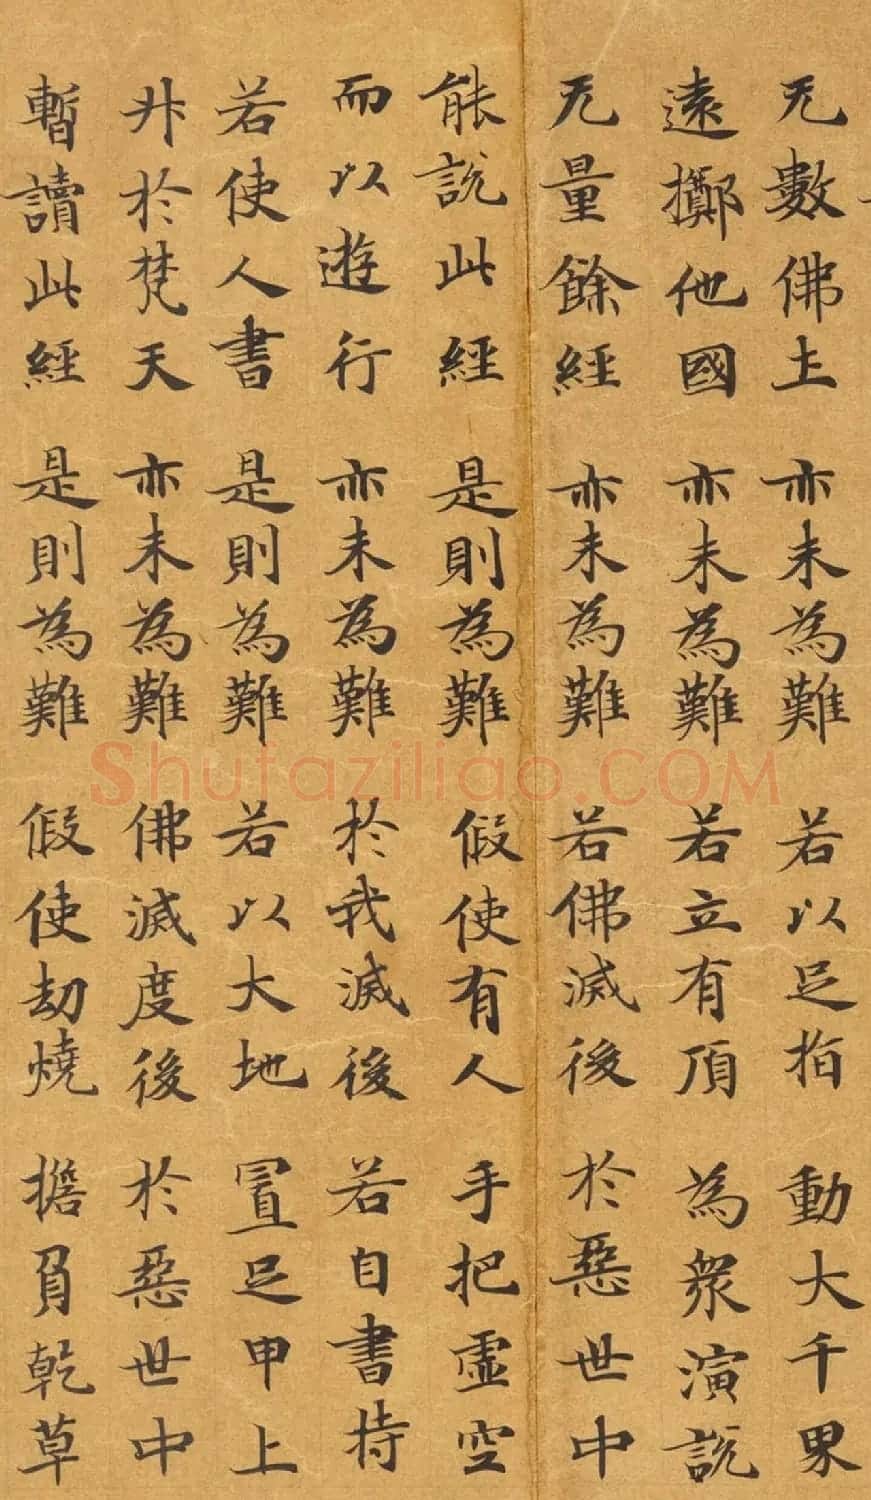 无數佛土 亦未為難 若以足指 動大千界
遠擲他國 亦未為難 若立有頂 為衆演説
无量餘經 亦未為難 若佛滅後 於惡世中
能説此經 是則為難 假使有人 手把虛空
而以遊行 亦未為難 於我滅後 若自書持
若使人書 是則為難 若以大地 置足甲上
升於梵天 亦未為難 佛滅度後 於惡世中
暫讀此經 是則為難 假使劫燒 擔負乾草
Shufaziliao.COM